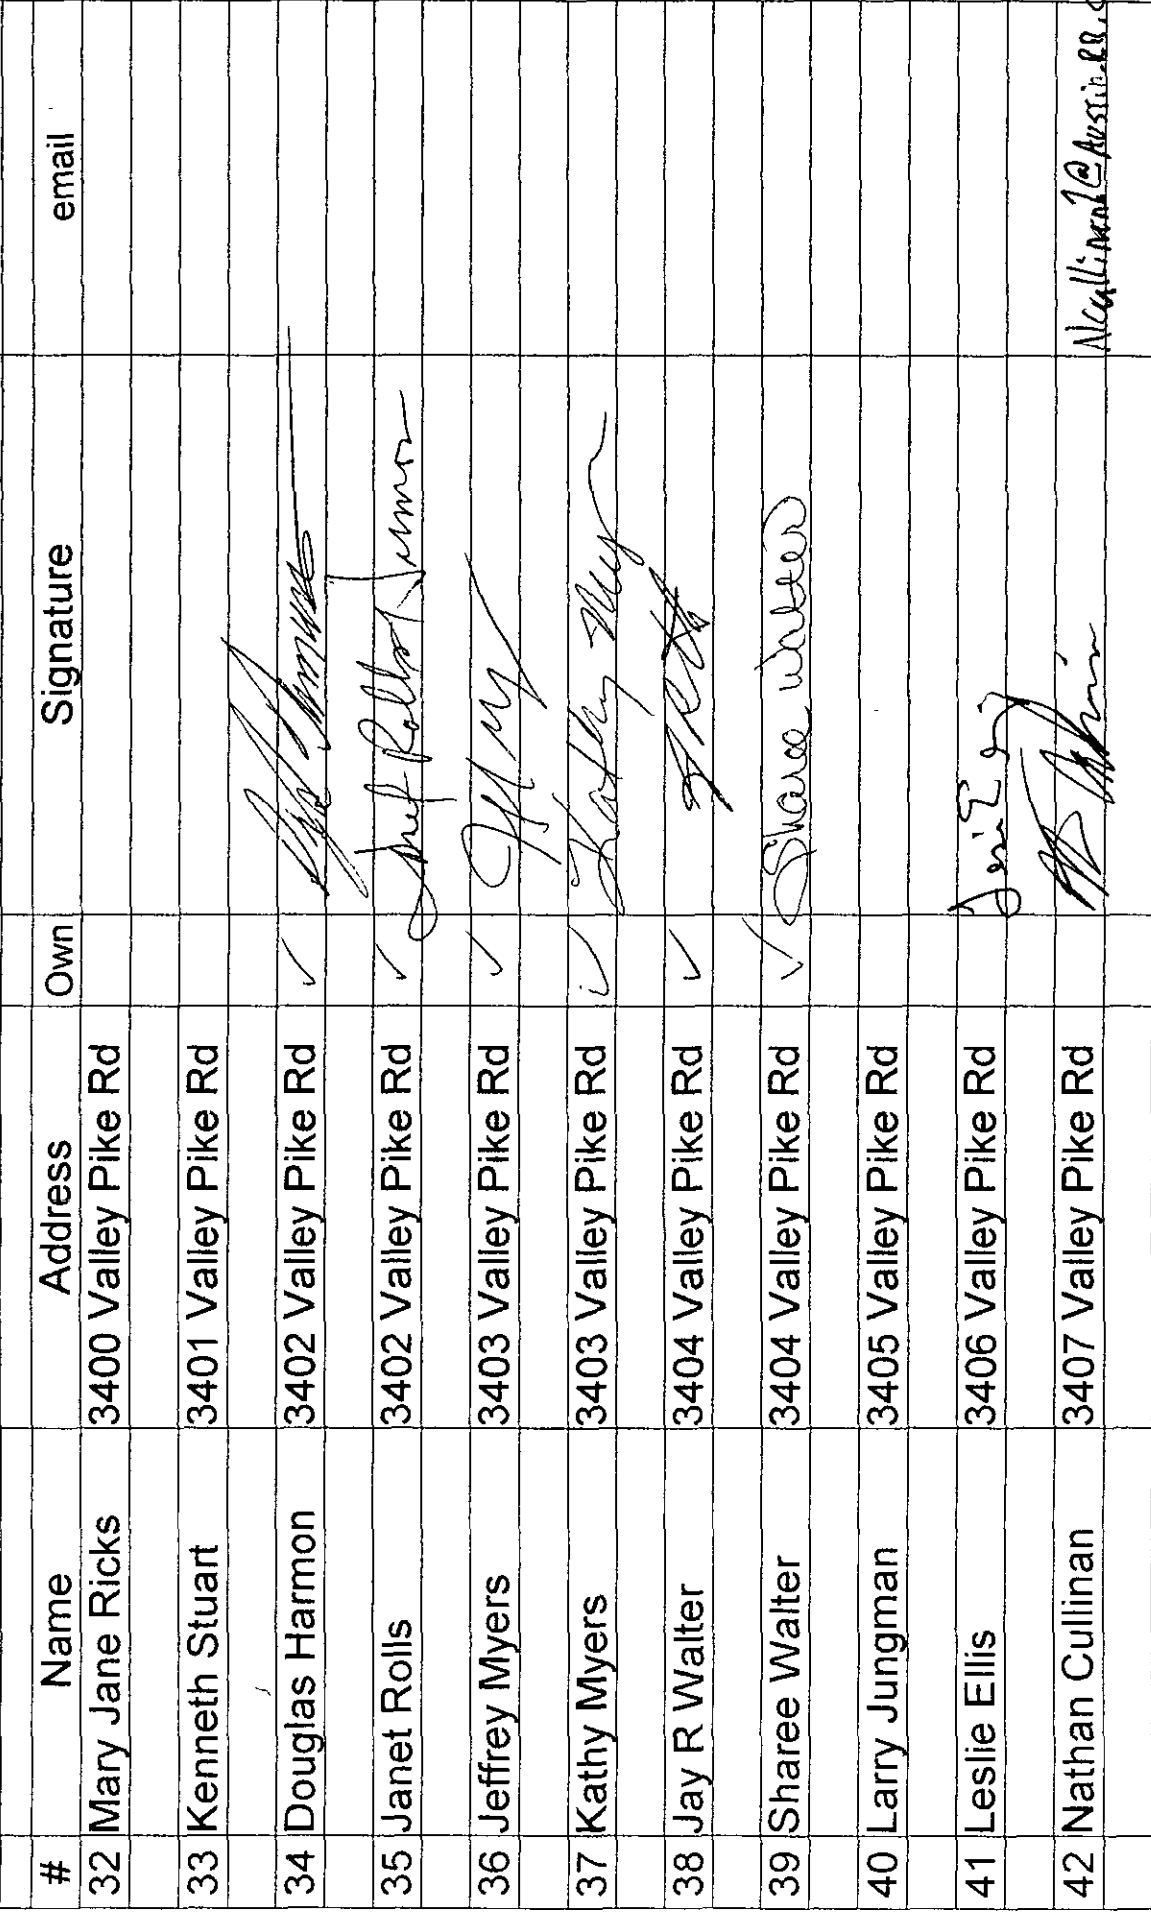 # Name Address Own Signature email
32 Mary Jane Ricks 3400 Valley Pike Rd
33 Kenneth Stuart 3401 Valley Pike Rd
34 Douglas Harmon 3402 Valley Pike Rd ✓
35 Janet Rolls 3402 Valley Pike Rd ✓ Janet Rolls Harmon
36 Jeffrey Myers 3403 Valley Pike Rd ✓
37 Kathy Myers 3403 Valley Pike Rd ✓ Kathy Myers
38 Jay R Walter 3404 Valley Pike Rd ✓
39 Sharee Walter 3404 Valley Pike Rd ✓ Sharee Walter
40 Larry Jungman 3405 Valley Pike Rd
41 Leslie Ellis 3406 Valley Pike Rd
42 Nathan Cullinan 3407 Valley Pike Rd